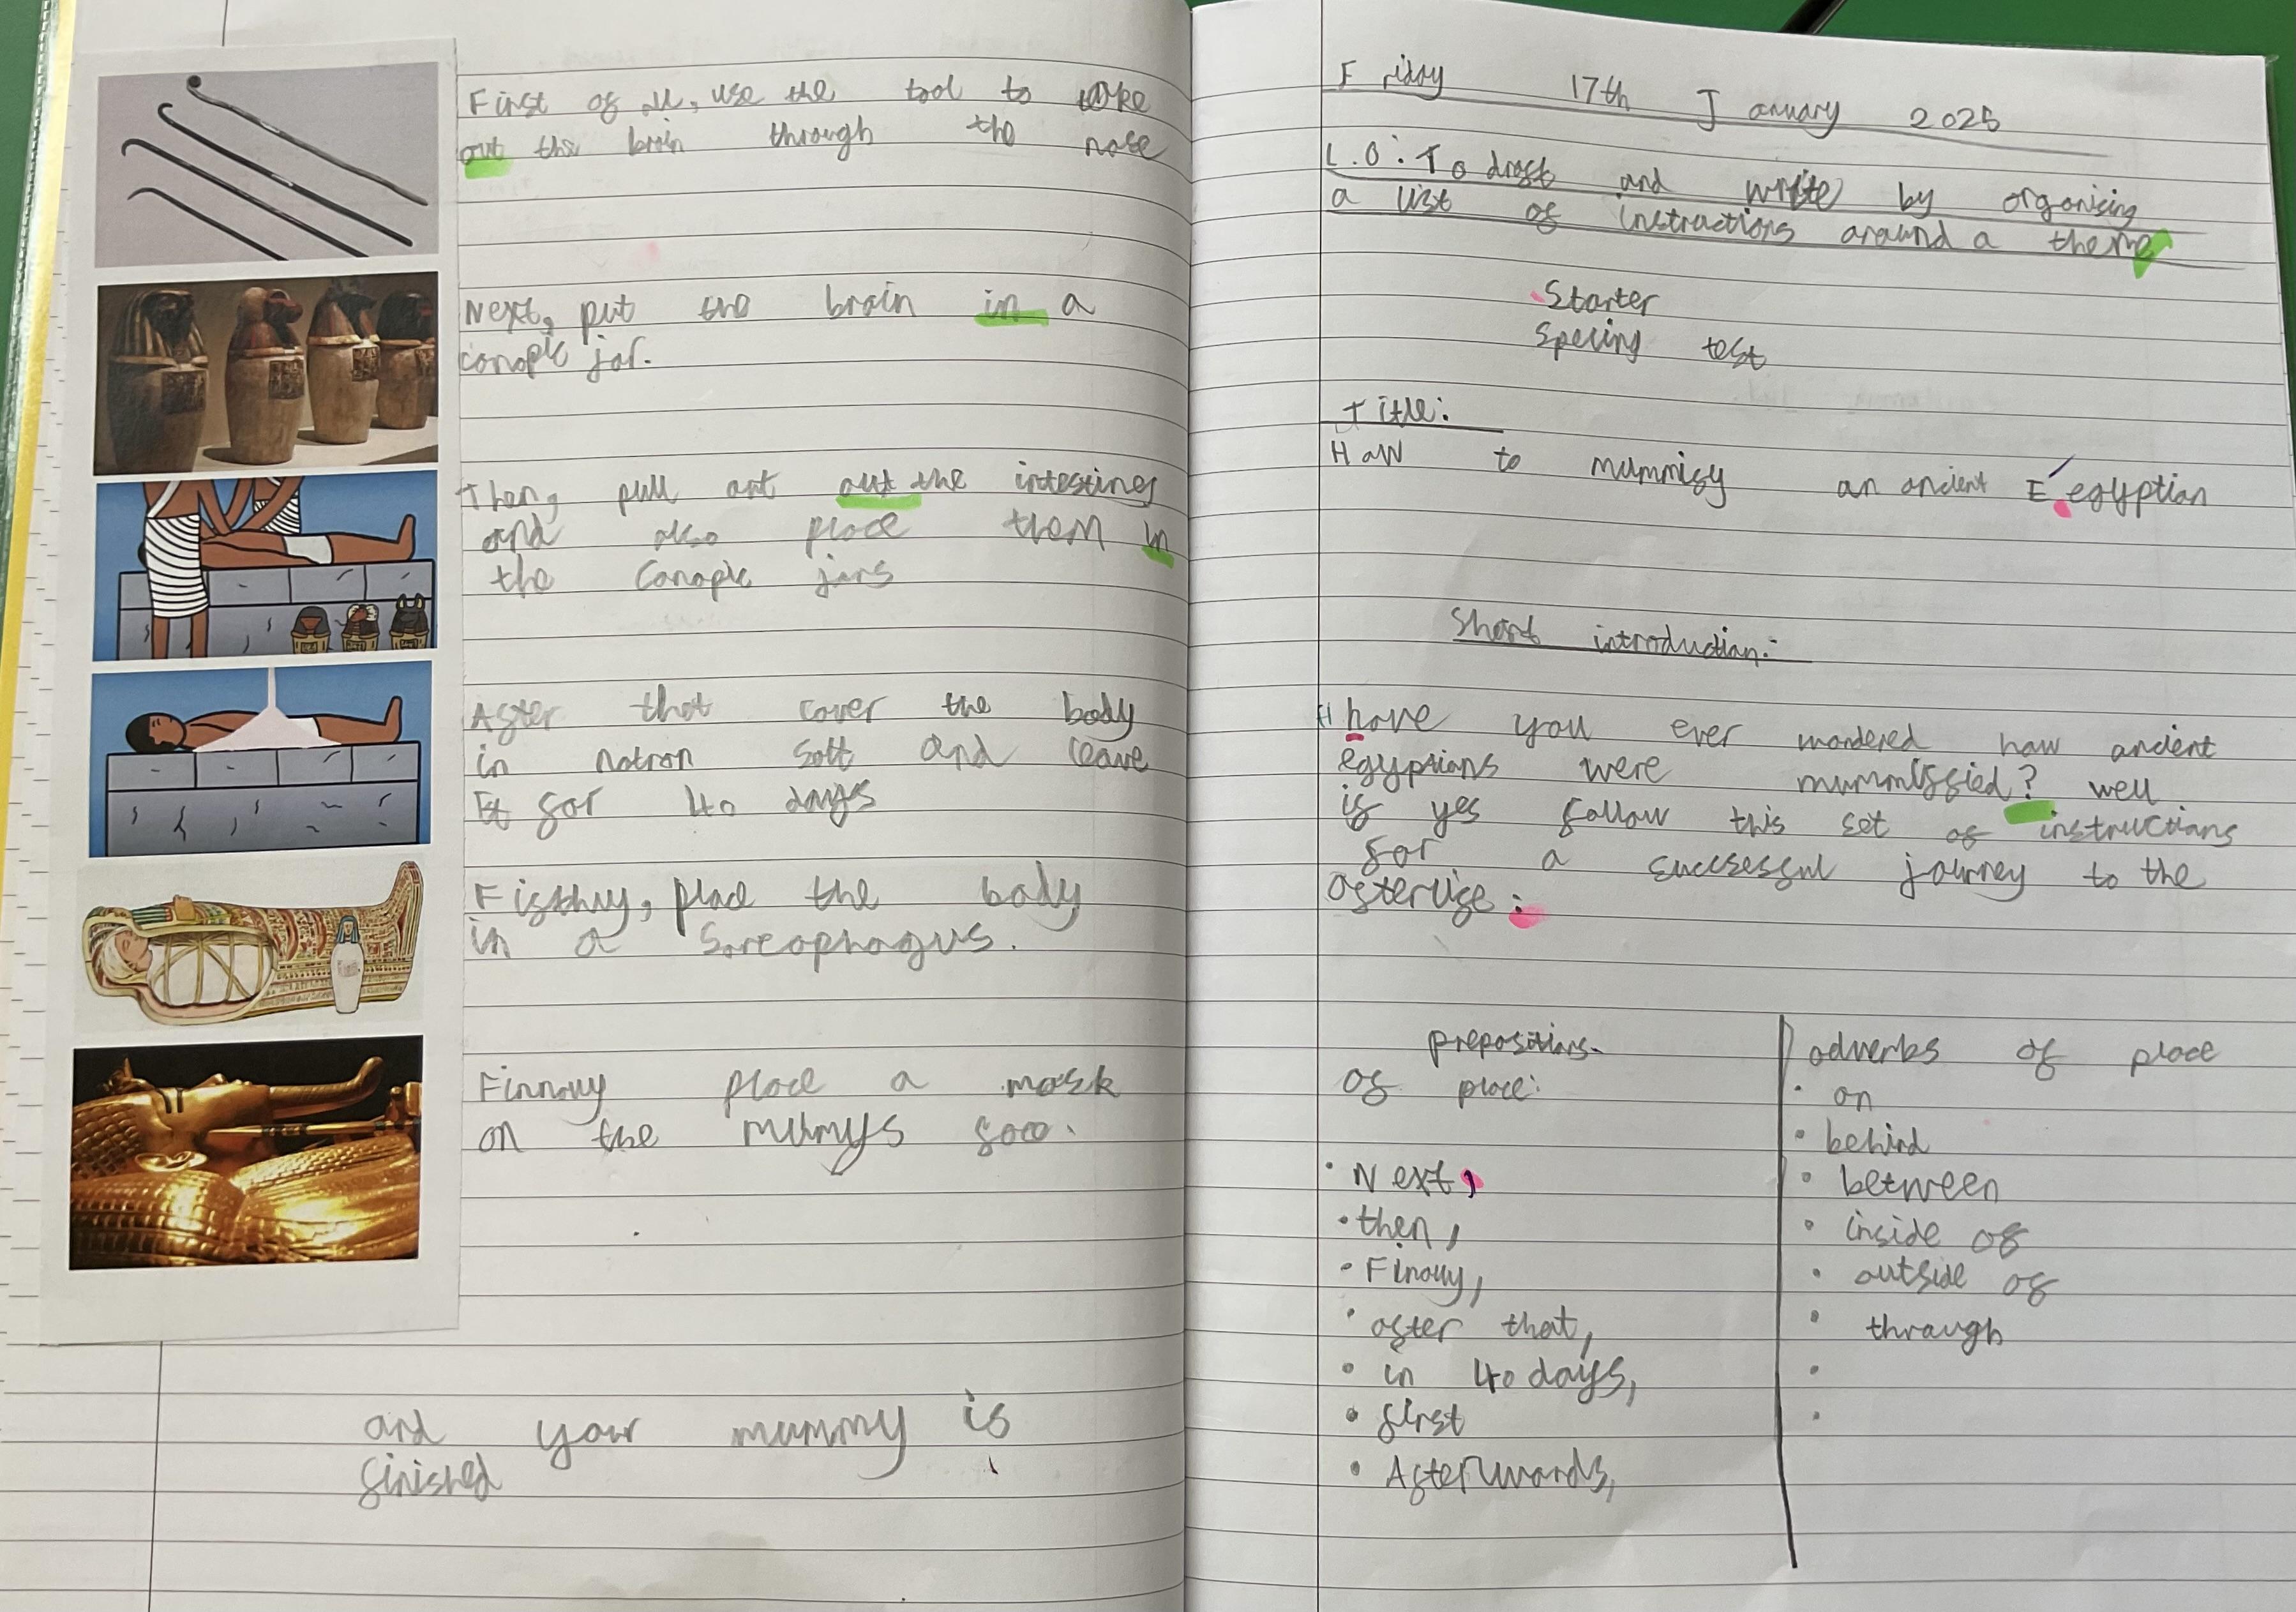 First of all, use the tool to take
out the brain through the nose
Next, put the brain in a
canopic jar.
Then, pull out out the intestines
and also place them in
the Canopic jars
After that cover the body
in natron salt and leave
it for 40 days
Fifthly, place the body
in a Sarcophagus.
Finnaly place a mask
on the mumys face.
and your mummy is
finished
Friday 17th January 2025
L.O: To draft and write by organising
a list of instructions around a theme
Starter
Speling test
Title:
How to mummify an ancient E egyptian
Short introduction:
H have you ever wondered how ancient
egyptians were mummified? well
if yes follow this set of instructions
for a succsessful journey to the
afterlife:
prepositions
of place:
• Next,
• then,
• Finally,
• after that,
• in 40 days,
• first
• Afterwards,
adverbs of place
• on
• behind
• between
• inside of
• outside of
• through